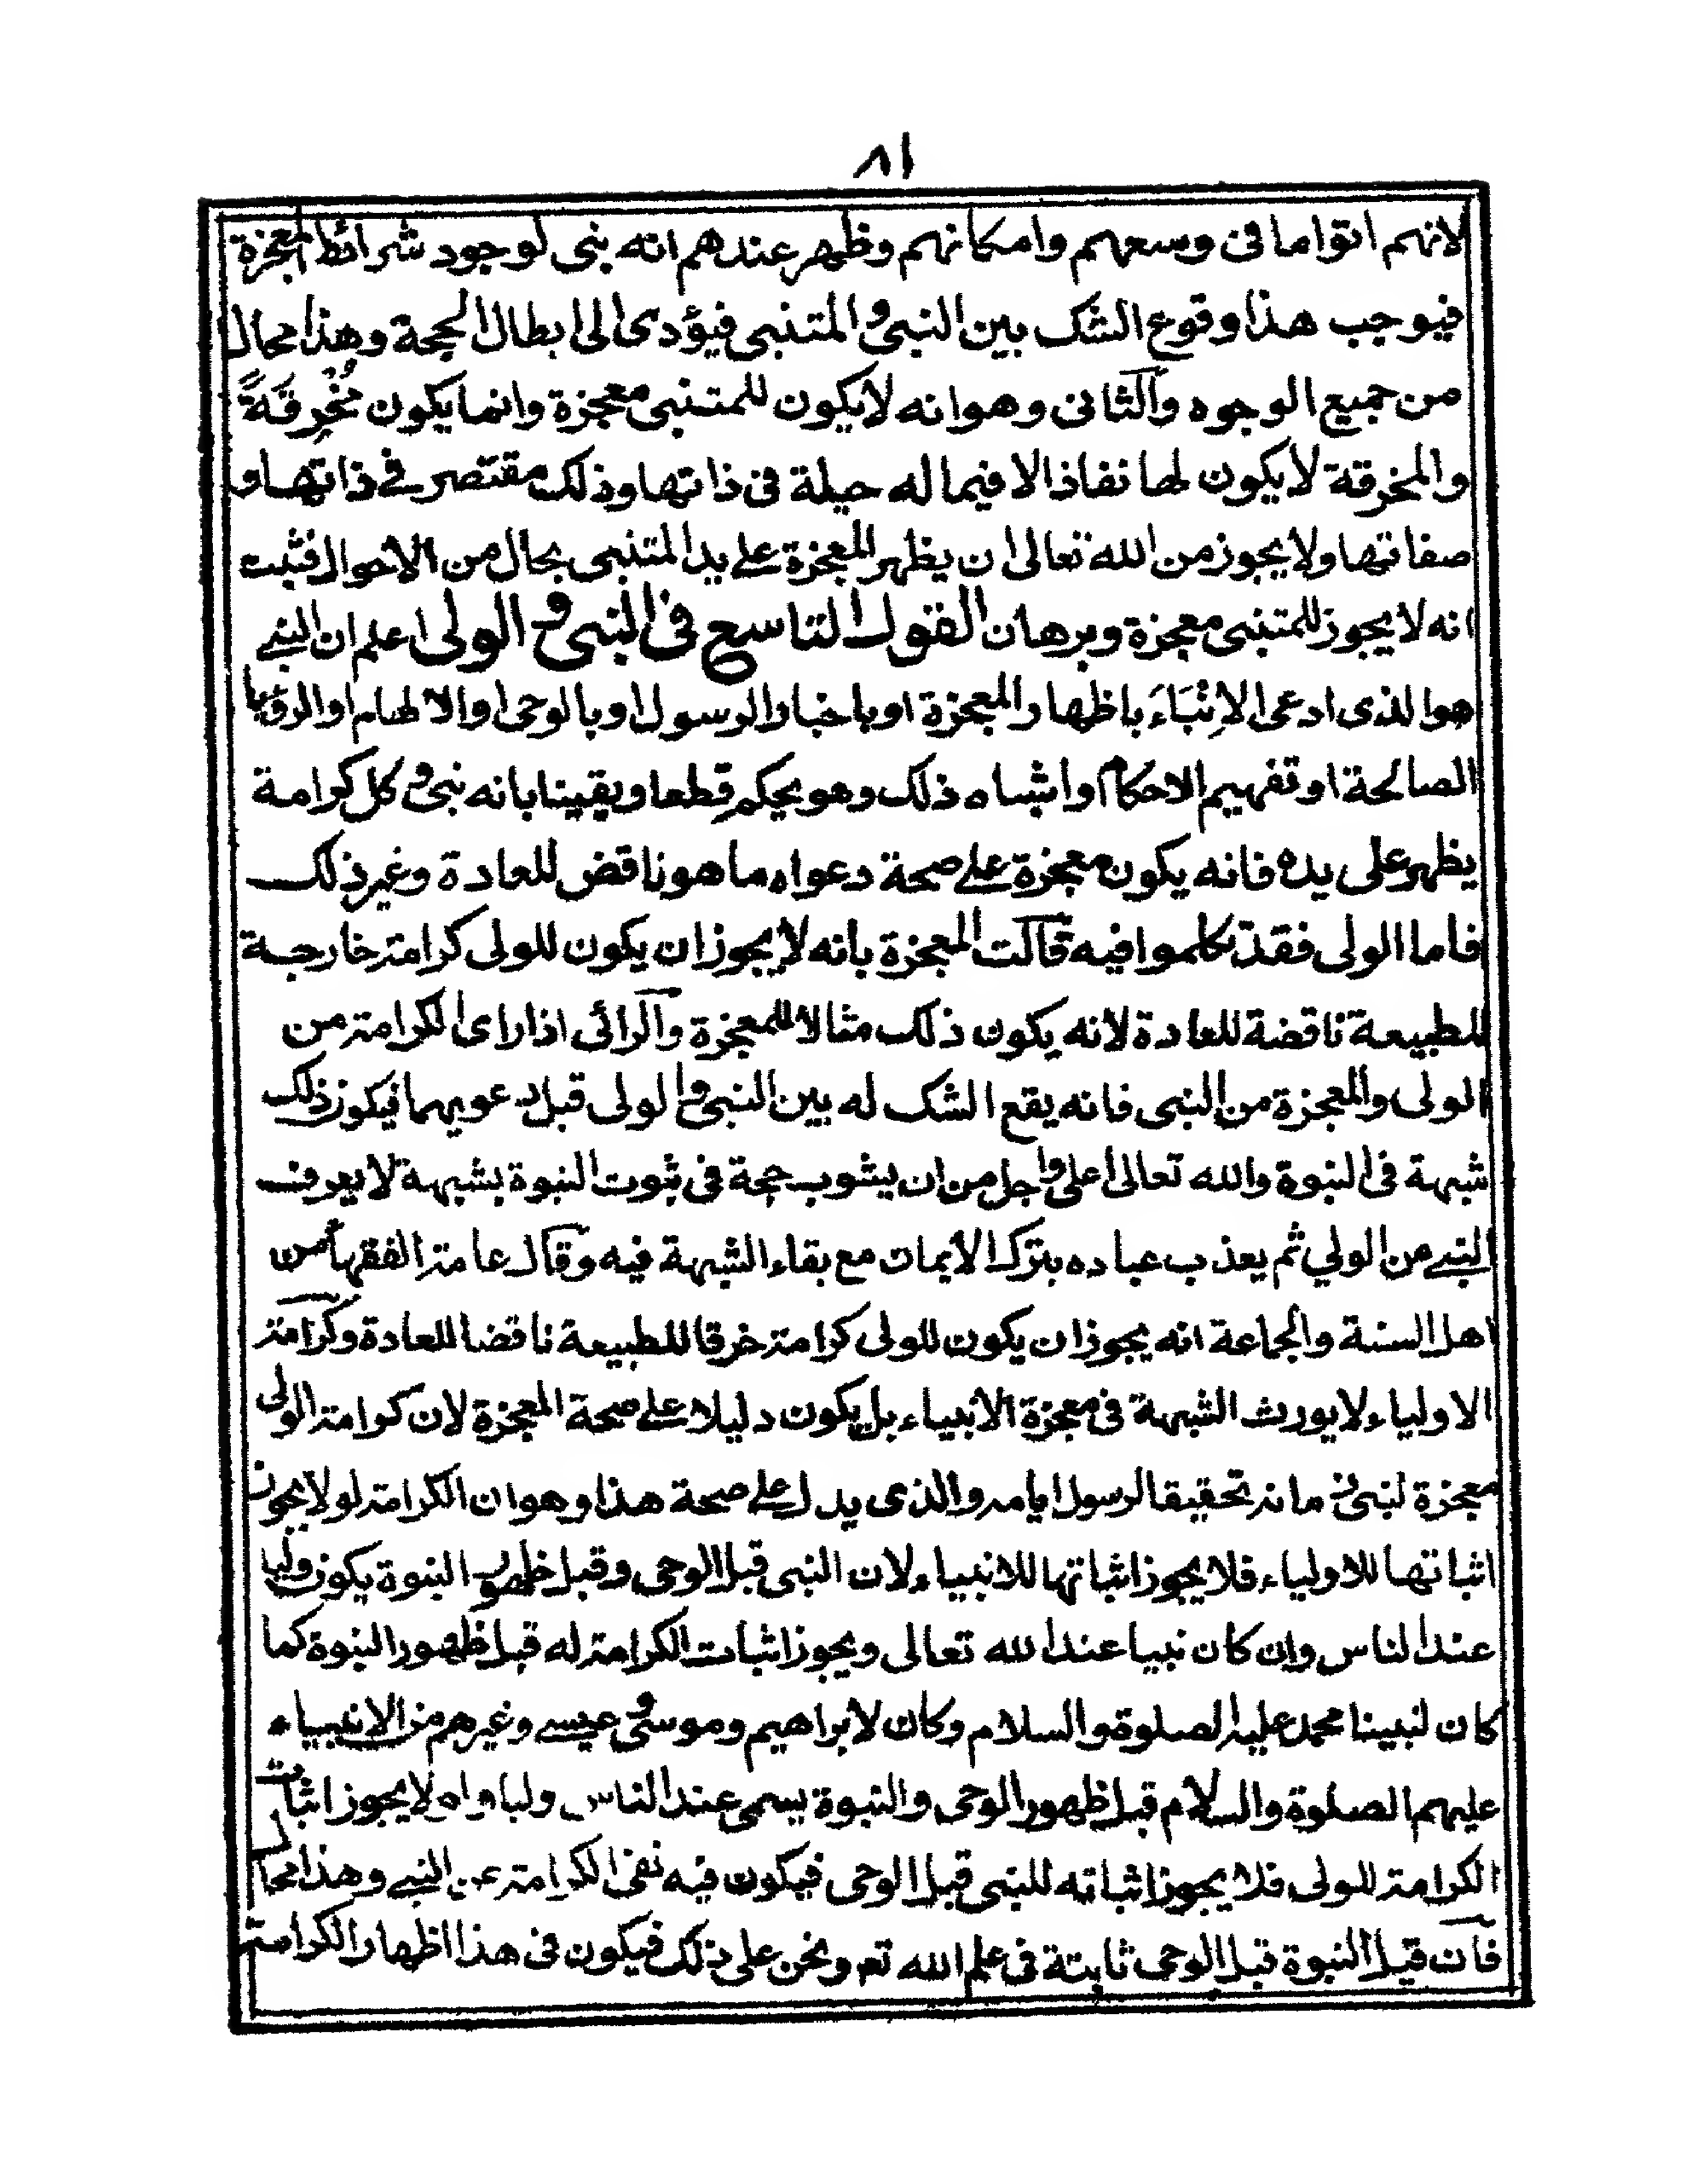 ٨١
لانهم اتوا ما فى وسعهم وامكانهم وظهر عندهم انه نبى لوجود شرائط المعجزة
فيوجب هذا وقوع الشك بين النبى والمتنبى فيؤدى الى ابطال الحجة وهذا محال
من جميع الوجوه والثانى وهو انه لا يكون للمتنبى معجزة وانما يكون مُخْرِقَةً
والمخرقة لا يكون لها نفاذ الا فيما له حيلة فى ذاتها وذلك مقتصر فى ذاتها و
صفاتها ولا يجوز من الله تعالى ان يظهر المعجزة على يد المتنبى بحال من الاحوال فثبت
انه لا يجوز للمتنبى معجزة وبرهان القول التاسع فى النبى والولى اعلم ان النبى
هو الذى ادعى الاِنْبَاءَ باظهار المعجزة او باخبار الرسول او بالوحى او الالهام او الرؤيا
الصالحة او تفهيم الاحكام او اشباه ذلك وهو يحكم قطعا ويقينا بانه نبى وكل كرامة
يظهر على يده فانه يكون معجزة على صحة دعواه ما هو ناقض للعادة وغير ذلك
فاما الولى فقد تكلموا فيه قالت المعجزة بانه لا يجوز ان يكون للولى كرامة خارجة
للطبيعة ناقضة للعادة لانه يكون ذلك مثالا للمعجزة والرائى اذا راى الكرامة من
الولى والمعجزة من النبى فانه يقع الشك له بين النبى والولى قبل دعويهما فيكون ذلك
شبهة فى النبوة والله تعالى اعلى واجل من ان يشوب حجة فى ثبوت النبوة بشبهة لا يعرف
النبى من الولي ثم يعذب عباده بترك الايمان مع بقاء الشبهة فيه وقال عامة الفقهاء من
اهل السنة والجماعة انه يجوز ان يكون للولى كرامة خرقا للطبيعة ناقضا للعادة وكرامة
الاولياء لا يورث الشبهة فى معجزة الانبياء بل يكون دليلا على صحة المعجزة لان كرامة الولى
معجزة لنبى زمانه تحقيقا لرسول ايامه والذى يدل على صحة هذا وهو ان الكرامة لو لا يجوز
اثباتها للاولياء فلا يجوز اثباتها للانبياء لان النبى قبل الوحى وقبل ظهور النبوة يكون وليا
عند الناس وان كان نبيا عند الله تعالى ويجوز اثبات الكرامة له قبل ظهور النبوة كما
كان لنبينا محمد عليه الصلوة والسلام وكان لابراهيم وموسى وعيسى وغيرهم من الانبياء
عليهم الصلوة والسلام قبل ظهور الوحى والنبوة يسمى عند الناس وليا ولو لا يجوز اثبات
الكرامة للولى فلا يجوز اثباته للنبى قبل الوحى فيكون فيه نفى الكرامة عن النبى وهذا محال
فان قيل النبوة قبل الوحى ثابتة فى علم الله تع ونحن على ذلك فيكون فى هذا اظهار الكرامة